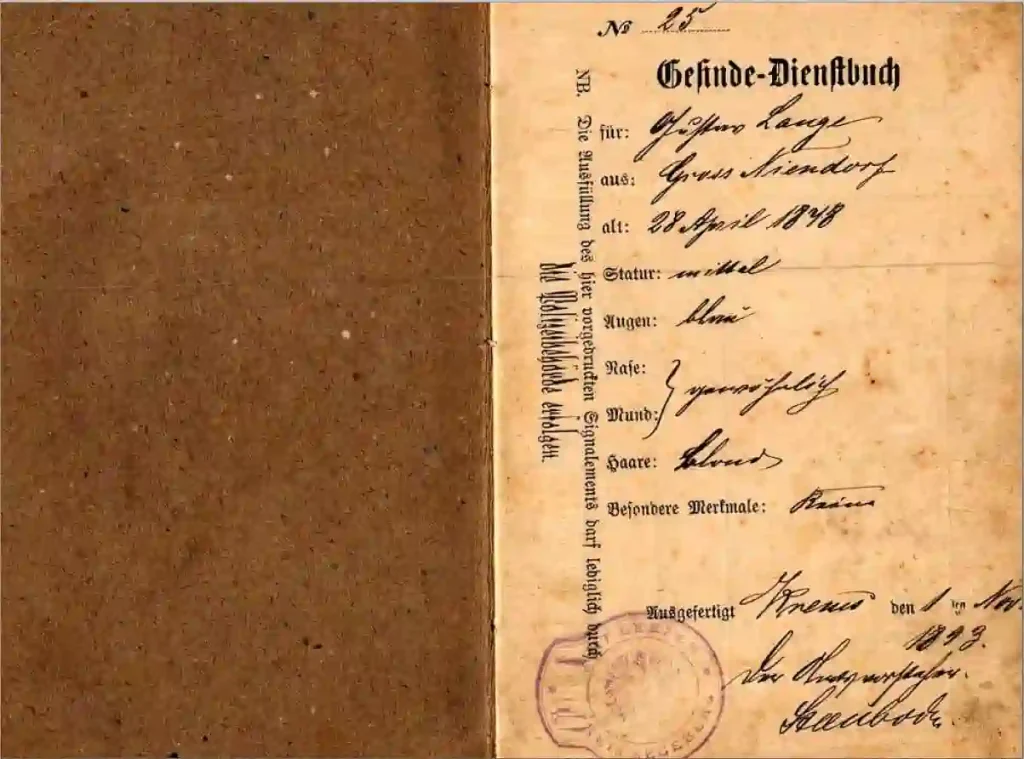 № 25
Gesinde-Dienstbuch
für: Gustav Lange
aus: Gross Niendorf
alt: 28 April 1878
Statur: mittel
Augen: blau
Nase:
Mund: } gewöhnlich
Haare: Blond
Besondere Merkmale: Keine
Ausgefertigt Krems den 1 ten Nov.
1893.
Der Amtsvorsteher.
NB. Die Ausfüllung des hier vorgedruckten Signalements darf lediglich durch
die Polizeibehörde erfolgen.